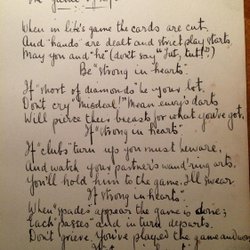 The game of
When in life's game the cards are cut,
And "hands" are dealt and strict play starts,
May you and "he" (don't say "Tut, tut!")
Be "strong in hearts".
If "short of diamonds" be your lot,
Don't cry "Misdeal!" Mean envy's darts
Will pierce their breasts for what you've got,
If "strong in hearts".
If "clubs" turn up you must beware,
And watch your partner's wand'ring arts.
You'll hold him to the game, I'll swear
If strong in hearts.
When "spades" appear the game is done;
Each "passes" and in turn departs.
Don't grieve, you've played the game and won